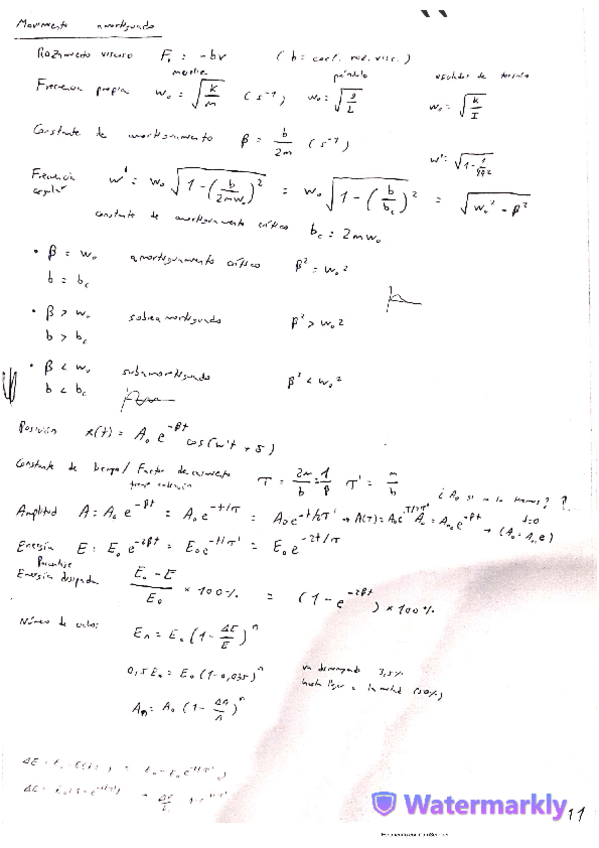 Movimiento amortiguado
Rozamiento viscoso Fr = -bv (b = coef. roz. visc.)
muelle péndulo oscilador de torsión
Frecuencia propia w₀ = √(k/m) (s⁻¹) w₀ = √(g/L) w₀ = √(k/I)
Constante de amortiguamiento β = b/2m (s⁻¹)
w' = √(1 - 1/4Q²)
Frecuencia angular w' = w₀ √(1 - (b/2mw₀)²) = w₀ √(1 - (b/b_c)²) = √(w₀² - β²)
constante de amortiguamiento crítico b_c = 2mw₀
• β = w₀ amortiguamiento crítico β² = w₀²
b = b_c
• β > w₀ sobreamortiguado β² > w₀²
b > b_c
• β < w₀ subamortiguado β² < w₀²
b < b_c
Posición x(t) = A₀ e^(-βt) cos(w't + δ)
Constante de tiempo / Factor de crecimiento τ = 2m/b = 1/β τ' = m/b
¿A₀ si no la tenemos?
Amplitud A = A₀ e^(-βt) = A₀ e^(-t/τ) = A₀ e^(-t/2τ')
Energía E = E₀ e^(-2βt) = E₀ e^(-t/τ') = E₀ e^(-2t/τ)
Porcentaje
Energía disipada (E₀ - E)/E₀ × 100% = (1 - e^(-2βt)) × 100%
Número de ciclos E_n = E₀ (1 - ΔE/E)ⁿ
0,5E₀ = E₀ (1 - 0,035)ⁿ va disminuyendo 3,5%
hasta llegar a la mitad (50%)
A_n = A₀ (1 - ΔA/A)ⁿ
Watermarkly
11